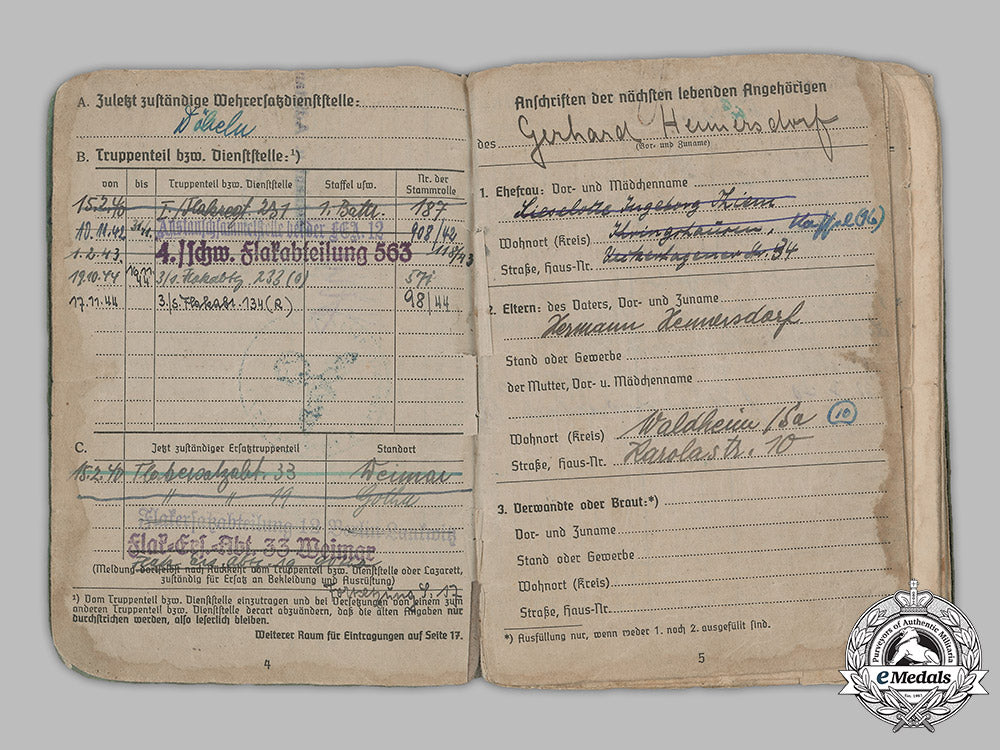 A. Zuletzt zuständige Wehrersatzdienststelle:
Döbeln
B. Truppenteil bzw. Dienststelle:¹)
von bis Truppenteil bzw. Dienststelle Staffel usw. Nr. der Stammrolle
15.2.40 I./Flakregt 231 1. Batt. 187
10.11.42 908/42
1.2.43. 4./schw. Flakabteilung 563
19.10.44 3/s. Flakabtg 233 (o) 571
17.11.44 3./s. Flakabt. 134 (R) 98/44
C. Jetzt zuständiger Ersatztruppenteil Standort
15.2.40 Flakersatzabt. 33 Weimar
" " 19 Gotha
Flakersatzabteilung 12 Berlin-Lankwitz
Flak-Ers.-Abt. 33 Weimar
(Meldung dortselbst nach Rückkehr vom Truppenteil bzw. Dienststelle oder Lazarett,
zuständig für Ersatz an Bekleidung und Ausrüstung)
Fortsetzung S. 17
¹) Vom Truppenteil bzw. Dienststelle einzutragen und bei Versetzungen von einem zum
anderen Truppenteil bzw. Dienststelle derart abzuändern, daß die alten Angaben nur
durchstrichen werden, also leserlich bleiben.
Weiterer Raum für Eintragungen auf Seite 17.
4
Anschriften der nächsten lebenden Angehörigen
des Gerhard Hemersdorf
(Vor- und Zuname)
1. Ehefrau: Vor- und Mädchenname
Lieselotte Ingeborg
Wohnort (Kreis)
Straße, Haus-Nr. 34
2. Eltern: des Vaters, Vor- und Zuname
Hermann Hemersdorf
Stand oder Gewerbe
der Mutter, Vor- u. Mädchenname
Wohnort (Kreis) Waldheim /Sa 10
Straße, Haus-Nr. Karolastr. 10
3. Verwandte oder Braut:*)
Vor- und Zuname
Stand oder Gewerbe
Wohnort (Kreis)
Straße, Haus-Nr.
*) Ausfüllung nur, wenn weder 1. noch 2. ausgefüllt sind.
5
Purveyors of Authentic Militaria
eMedals